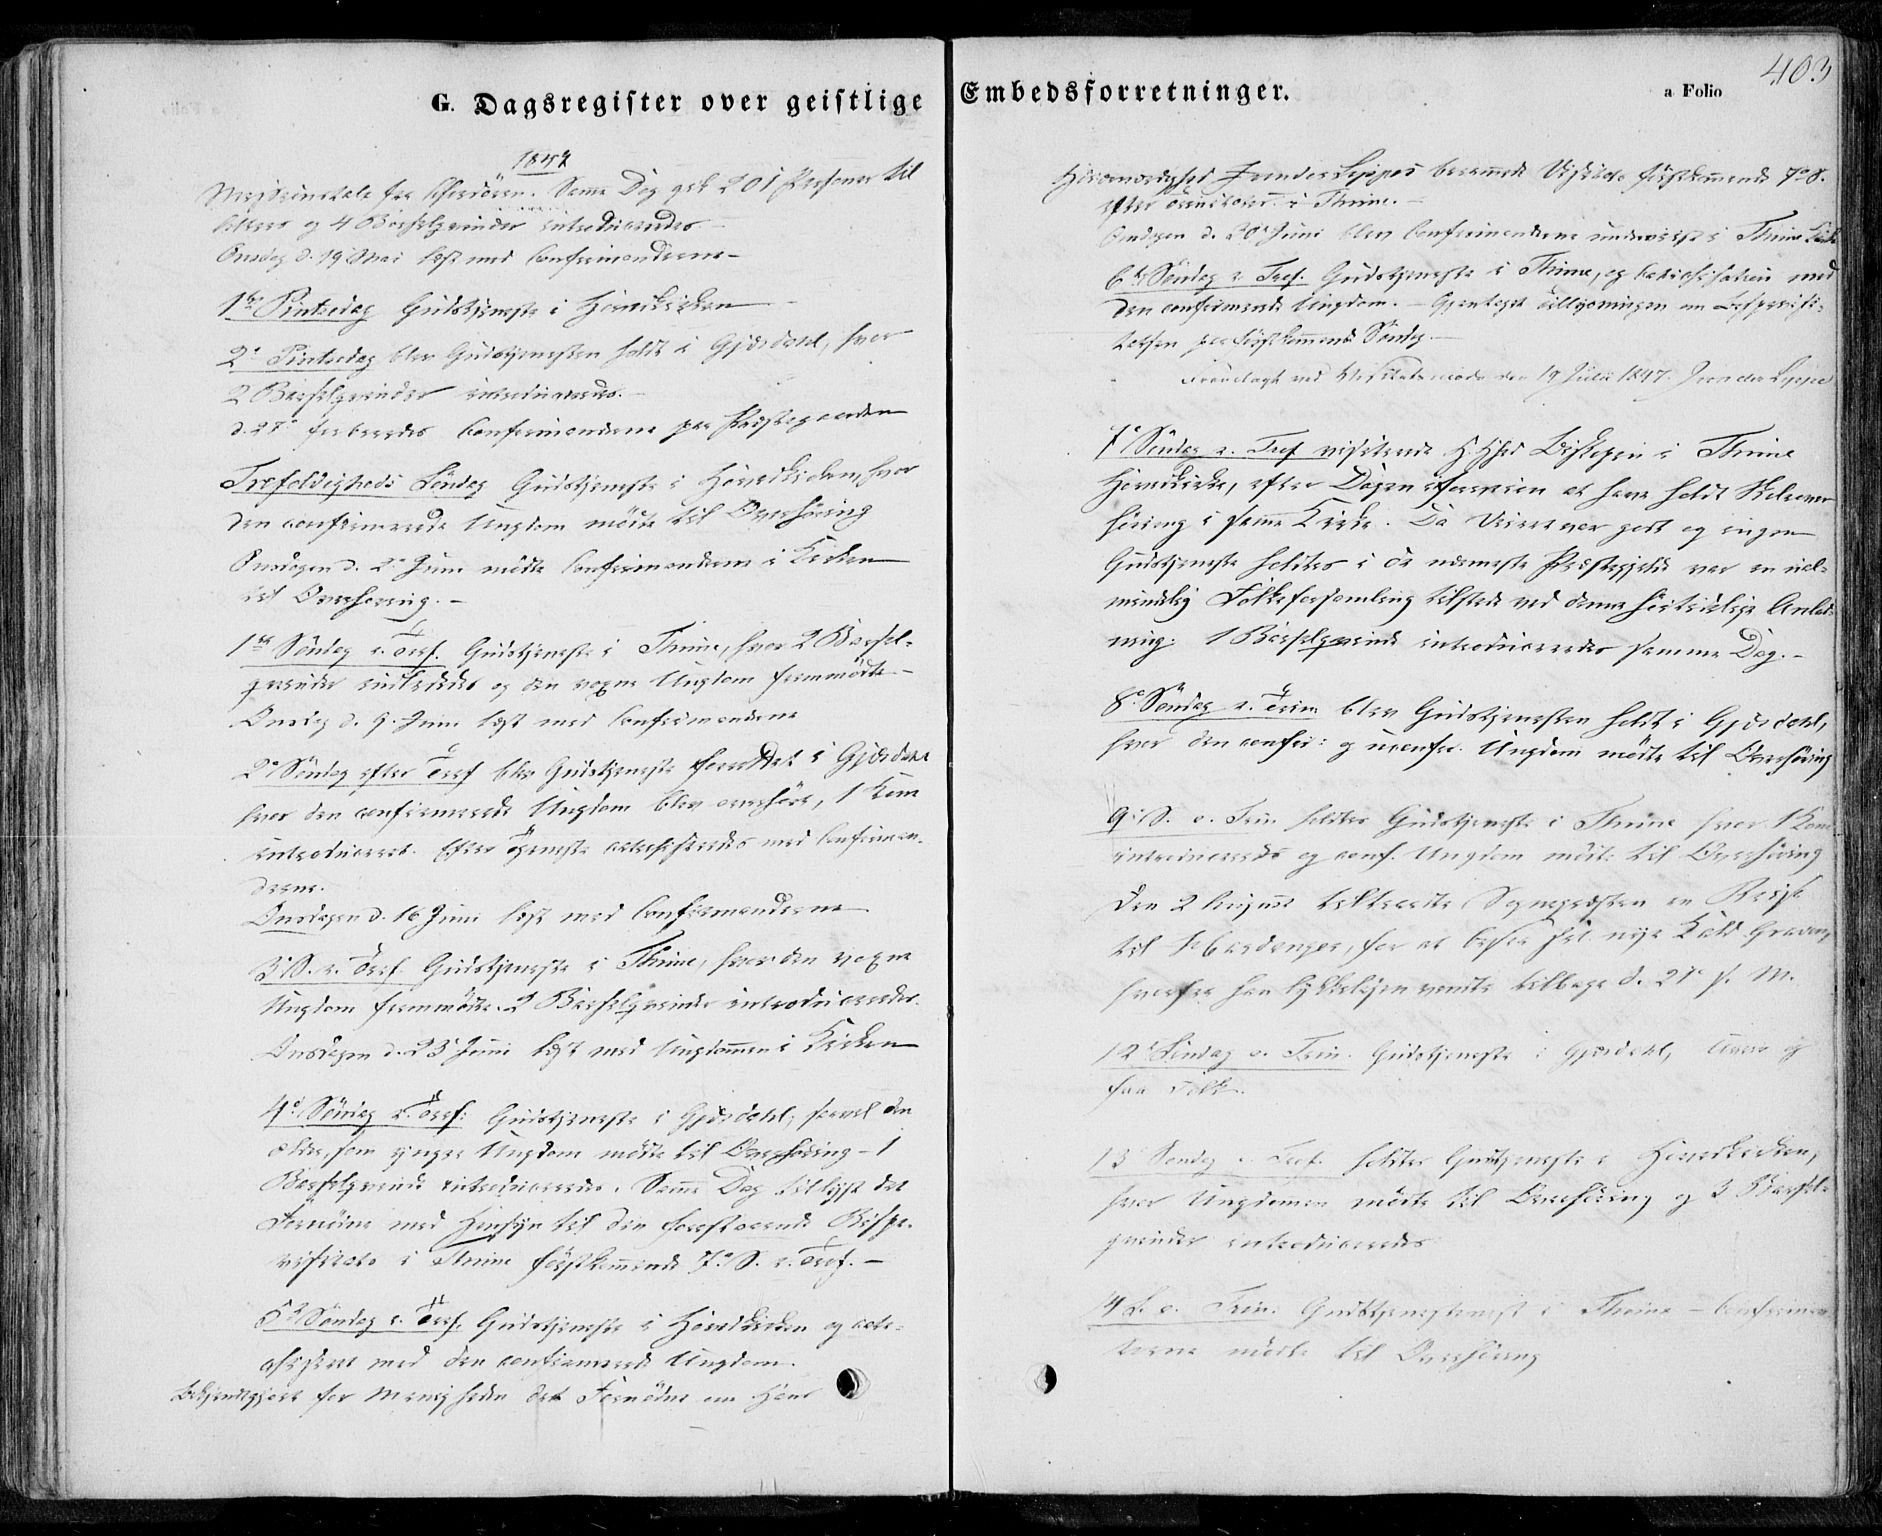 G. Dagsregister over geistlige Embedsforretninger.
a Folio
403
1847
Samme Dag gik 201 Personer til
Alters og 4 Barselqvinder introduceredes.
Onsdag d. 19 Mai læst med Confirmanderne
1ste Pintsedag Gudstjeneste i Hovedkirken
2den Pintsedag blev Gudstjenesten holdt i Gjæsdahl, hvor
2 Barselqvinder introduceredes.
d. 27de forberedes Confirmanderne paa Præstegaarden
Trefoldigheds Söndag Gudstjeneste i Hovedkirken, hvor
den confirmerede Ungdom mödte til Overhöring
Onsdagen d. 2den Juni mödte Confirmanderne i Kirken
til Overhöring.
1ste Söndag e. Tref. Gudstjeneste i Thime, hvor 2 Barsel-
qvinder indlededes og den voxne Ungdom fremmödte
Onsdag d. 9. Juni læst med Confirmanderne
2den Söndag efter Tref blev Gudstjeneste forrettet i Gjæsdahl
hvor den confirmerede Ungdom blev overhört, 1 Kone
introduceret. Efter Tjeneste catechiseredes med Confirman-
derne.
Onsdagen d. 16 Juni læst med Confirmanderne
3die S. e. Tref. Gudstjeneste i Thime, hvor den voxne
Ungdom fremmödte. 2 Barselqvinder introduceredes.
Onsdagen d. 23de Juni læst med Ungdommen i Kirken
4de Söndag e. Tref: Gudstjeneste i Gjæsdahl, saavel den
ældre, som yngre Ungdom mödte til Overhöring - 1
Barselqvinde introduceredes. Samme Dag tillyst det
Fornödne med Hensyn til den forestaaende Bispe-
visitats i Thime förstkommende 7de S. e. Tref. -
5te Söndag e. Tref. Gudstjeneste i Hovedkirken og cate-
chiseret med den confirmerede Ungdom.
Bekjendtgjort for Menigheden det Fornödne om Hans
Höiærværdighed von der Lippes berammede Visitats förstkommende 7de S.
efter Trinitatis i Thime. -
Onsdagen d. Juni blev Confirmanderne underviist i Thime Kirke
6te Söndag e. Tref. Gudstjeneste i Thime, og Catechisation med
den confirmerede Ungdom. - Gjentaget Tillysningen om Bispevisi-
tatsen paa förstkommende Söndag. -
Fremlagt ved Visitatsmöde den 19 Juli 1847. von der Lippe
7de Söndag e. Tref visiterede H. Hhed Biskopen i Thime
Hovedkirke, efter Dagen at have holdt Skoleover-
höring i samme Kirke. Da Veiret var godt og ingen
Gudstjeneste holdtes i de nærmeste Præstegjelde var en ual-
mindelig Folkeforsamling tilstede ved denne höitidelige Anled-
ning. 1 Barselqvinde introduceredes samme Dag. -
8de Söndag e. Trin. blev Gudstjenesten holdt i Gjæsdahl,
hvor den confir: og uconfir. Ungdom mödte til Overhöring
9de S. e. Trin. holdtes Gudstjeneste i Thime hvor 1 Kone
introduceredes og conf. Ungdom mödte til Overhöring
Den 2 August tiltraadte Sognepræsten en Reise
til Hardanger, for at besee sit nye Kald Graven,
hvorfra han lykkeligen vendte tilbage d. 21de s. M.
12te Söndag e. Trin. Gudstjeneste i Gjæsdahl, og
faa Folk.
13 Söndag e. Tref. holdtes Gudstjeneste i Hovedkirken,
hvor Ungdommen mödte til Overhöring og 3 Barsel-
qvinder introduceredes
14 S. e. Trin. Gudstjenesten i Thime - Confirman-
derne mödte til Overhöring